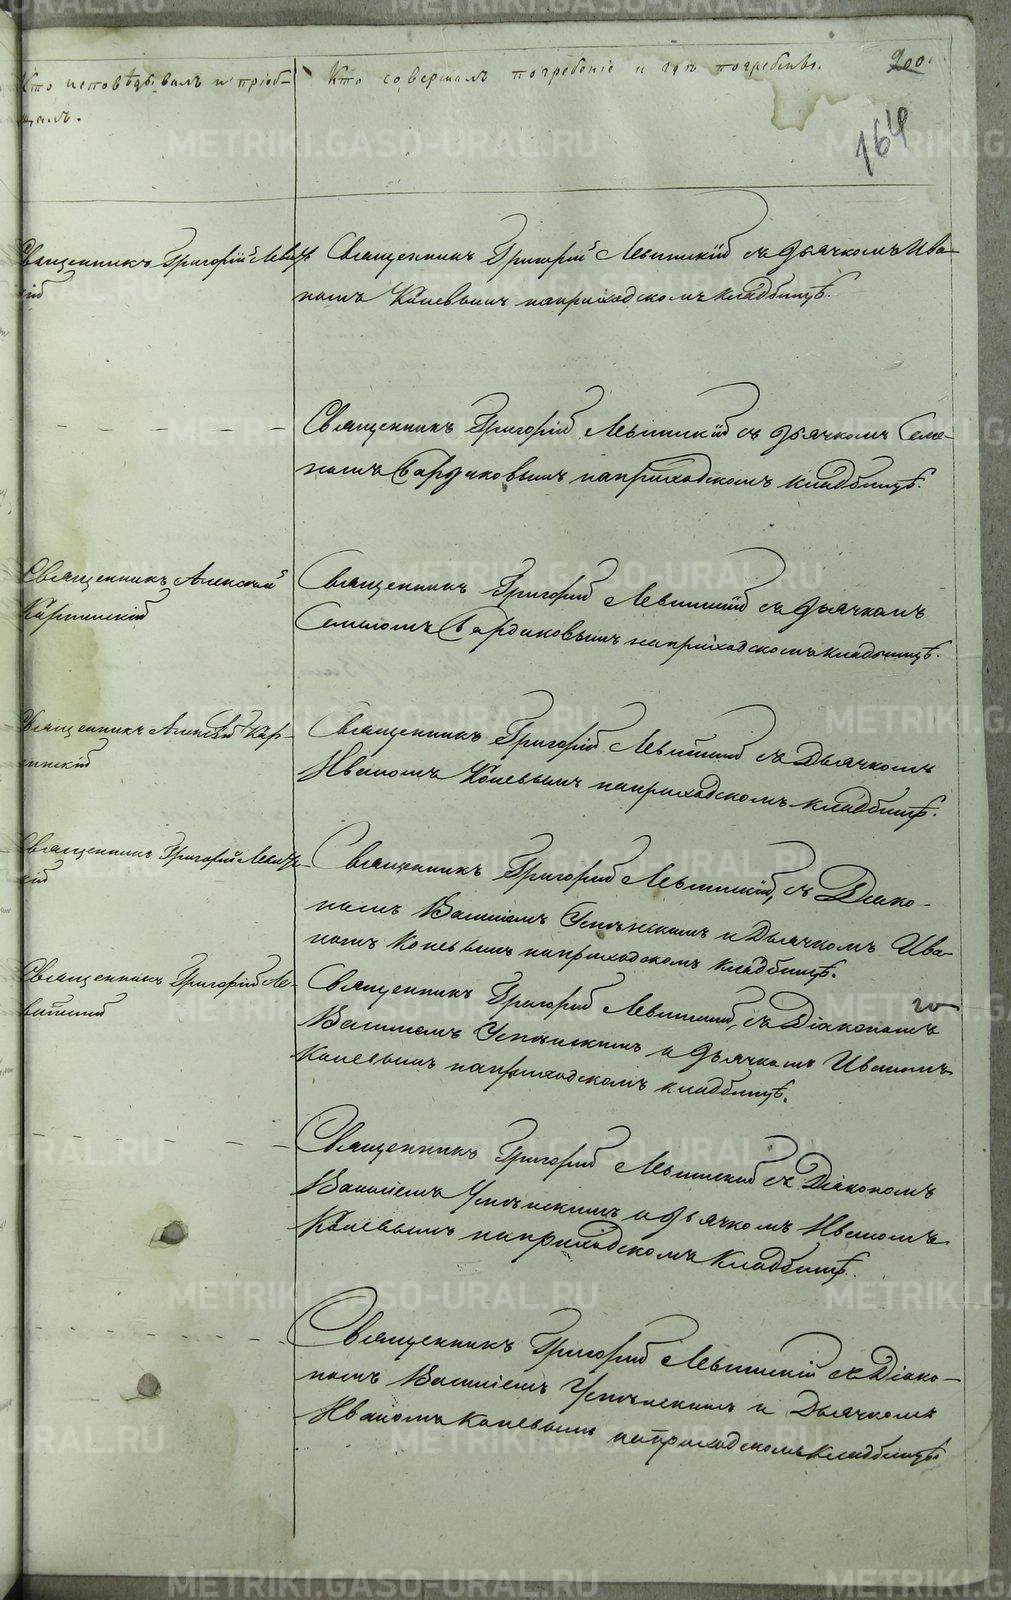 Кто исповѣдывалъ и пріоб-
щалъ.
Кто совершалъ погребеніе и гдѣ погребены.
200.
164
Священникъ Григорій Левит
кій
Священникъ Григорій Левитскій съ дьячкомъ Ива-
номъ Коневымъ на приходскомъ кладбищѣ.
Священникъ Григорій Левитскій съ дьячкомъ Семе-
номъ Бардаковымъ на приходскомъ кладбищѣ.
Священникъ Алексѣй
Карпинскій
Священникъ Григорій Левитскій съ дьячкомъ
Семеномъ Бардаковымъ на приходскомъ кладбищѣ.
Священникъ Алексѣй Кар-
пинскій
Священникъ Григорій Левитскій съ Дьячкомъ
Иваномъ Коневымъ на приходскомъ кладбищѣ.
Священникъ Григорій Левитс-
кій
Священникъ Григорій Левитскій, съ Діако-
номъ Василіемъ Успенскимъ и Дьячкомъ Ива-
номъ Коневымъ на приходскомъ кладбищѣ.
Священникъ Григорій Ле-
витскій
Священникъ Григорій Левитскій, съ Діакономъ
Василіемъ Успенскимъ и дьячкомъ Иваномъ
Коневымъ на приходскомъ кладбищѣ.
Священникъ Григорій Левитскій съ Діакономъ
Василіемъ Успенскимъ и дьячкомъ Иваномъ
Коневымъ на приходскомъ кладбищѣ.
Священникъ Григорій Левитскій съ Діако-
номъ Василіемъ Успенскимъ и Дьячкомъ
Иваномъ Коневымъ на приходскомъ кладбищѣ
METRIKI.GASO-URAL.RU